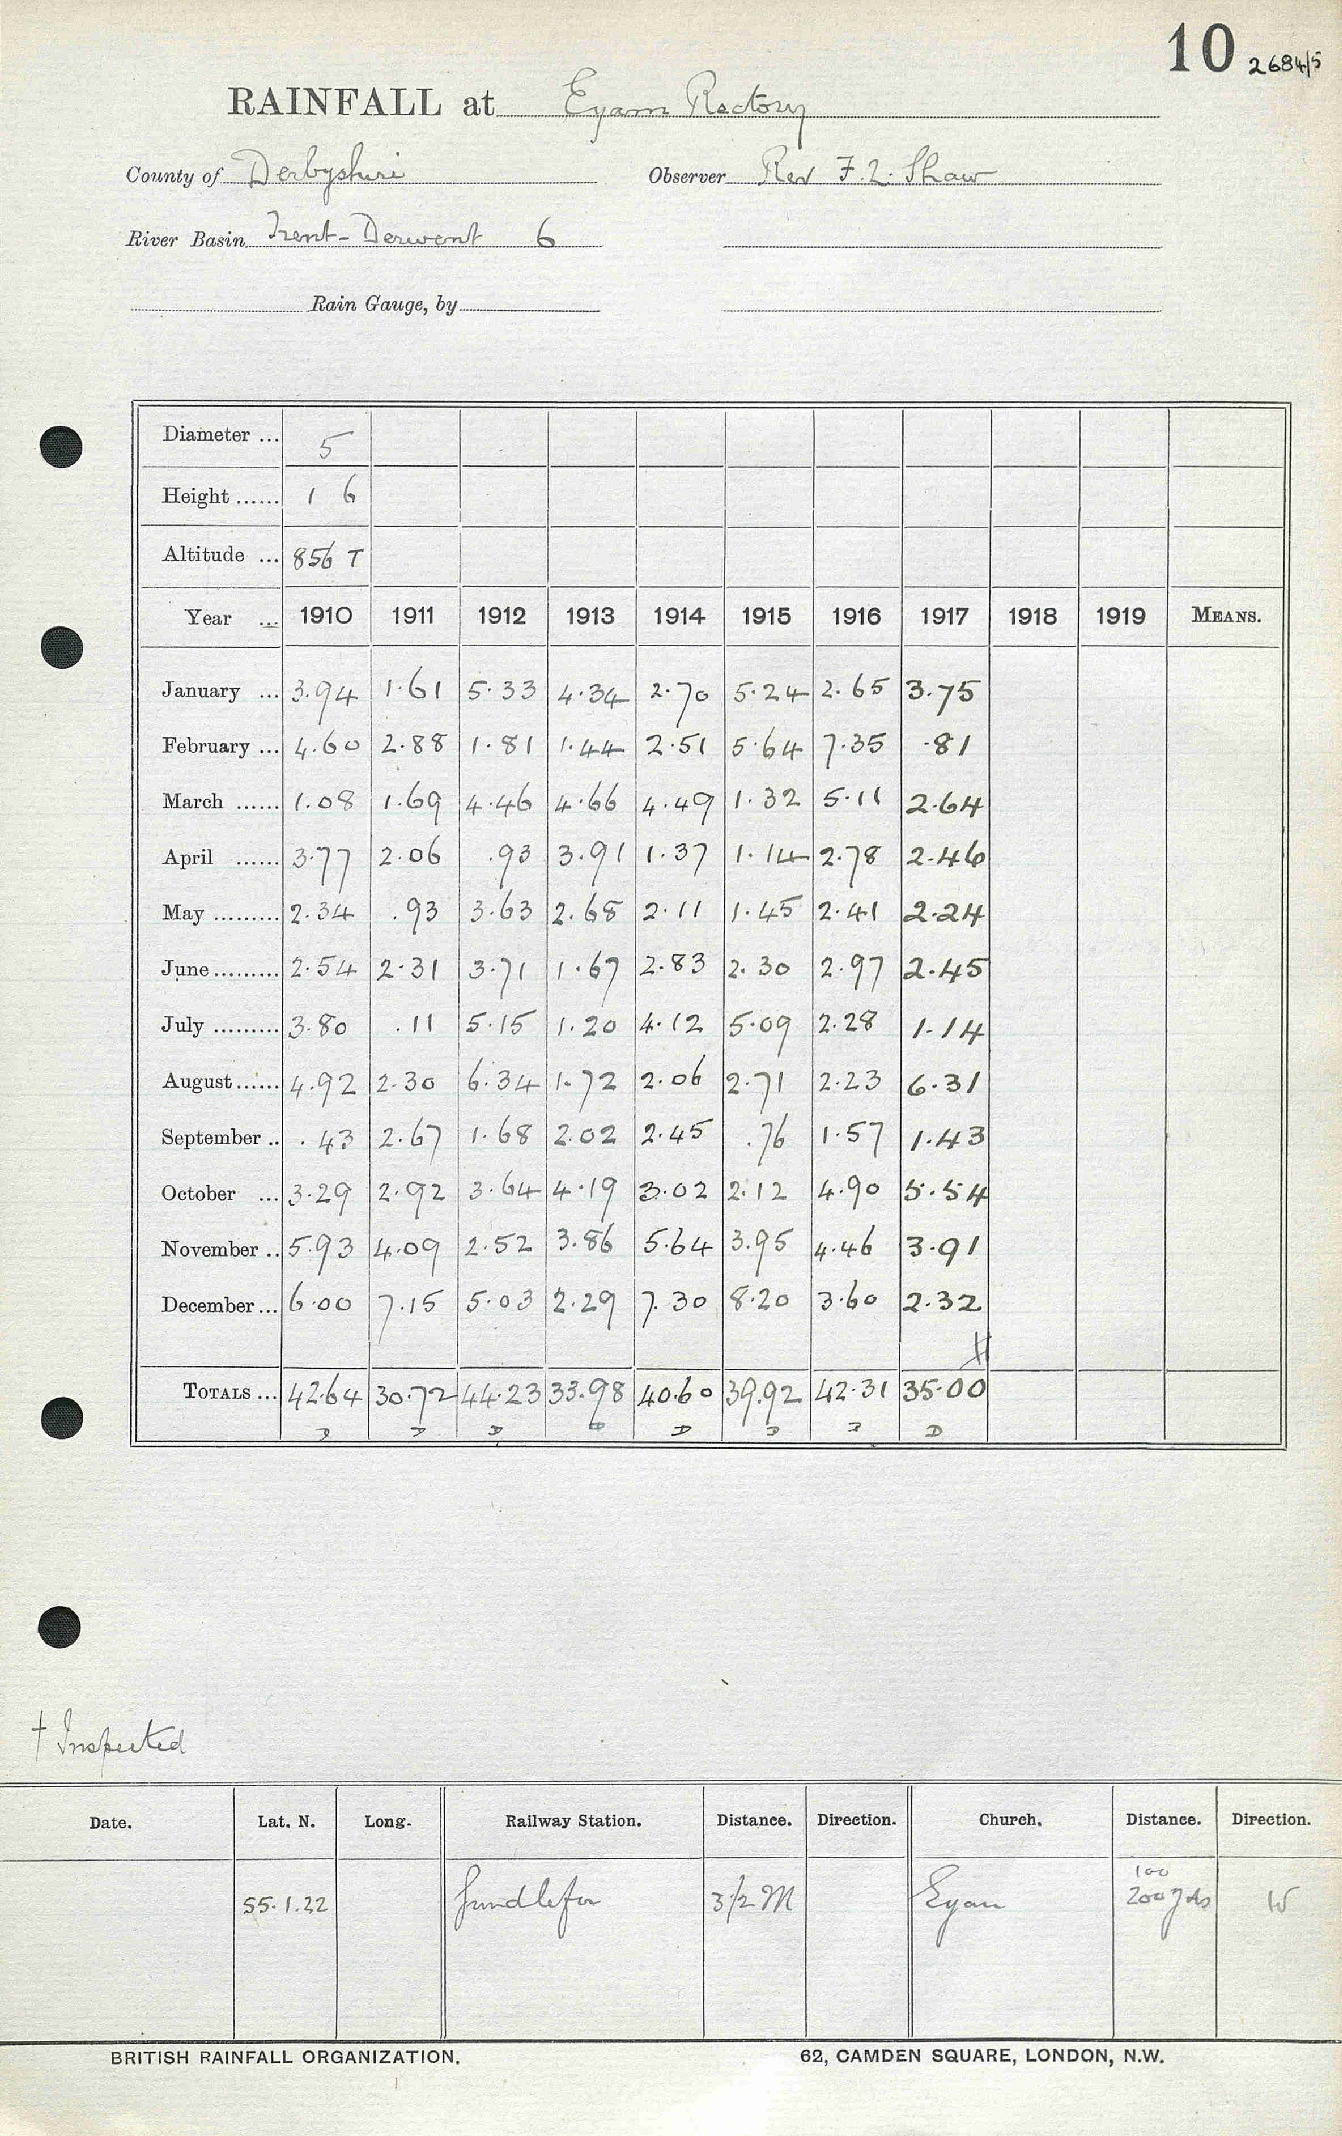 10 2684/5
RAINFALL at Eyam Rectory
County of Derbyshire Observer Rev F. L. Shaw
River Basin Trent-Derwent 6
Rain Gauge, by
Diameter ... 5
Height ...... 1 6
Altitude ... 856 T
Year ... 1910 1911 1912 1913 1914 1915 1916 1917 1918 1919 MEANS.
January ... 3.94 1.61 5.33 4.34 2.70 5.24 2.65 3.75
February ... 4.60 2.88 1.81 1.44 2.51 5.64 7.35 .81
March ...... 1.08 1.69 4.46 4.66 4.49 1.32 5.11 2.64
April ...... 3.77 2.06 .93 3.91 1.37 1.14 2.78 2.46
May ......... 2.34 .93 3.63 2.68 2.11 1.45 2.41 2.24
June ......... 2.54 2.31 3.71 1.67 2.83 2.30 2.97 2.45
July ......... 3.80 .11 5.15 1.20 4.12 5.09 2.28 1.14
August ...... 4.92 2.30 6.34 1.72 2.06 2.71 2.23 6.31
September .. .43 2.67 1.68 2.02 2.45 .76 1.57 1.43
October ... 3.29 2.92 3.64 4.19 3.02 2.12 4.90 5.54
November .. 5.93 4.09 2.52 3.86 5.64 3.95 4.46 3.91
December ... 6.00 7.15 5.03 2.29 7.30 8.20 3.60 2.32
TOTALS ... 42.64 30.72 44.23 33.98 40.60 39.92 42.31 35.00
D D D D D D D D
† Inspected
Date. Lat. N. Long. Railway Station. Distance. Direction. Church. Distance. Direction.
100
55.1.22 3½ M Eyam 200 yds W
BRITISH RAINFALL ORGANIZATION. 62, CAMDEN SQUARE, LONDON, N.W.